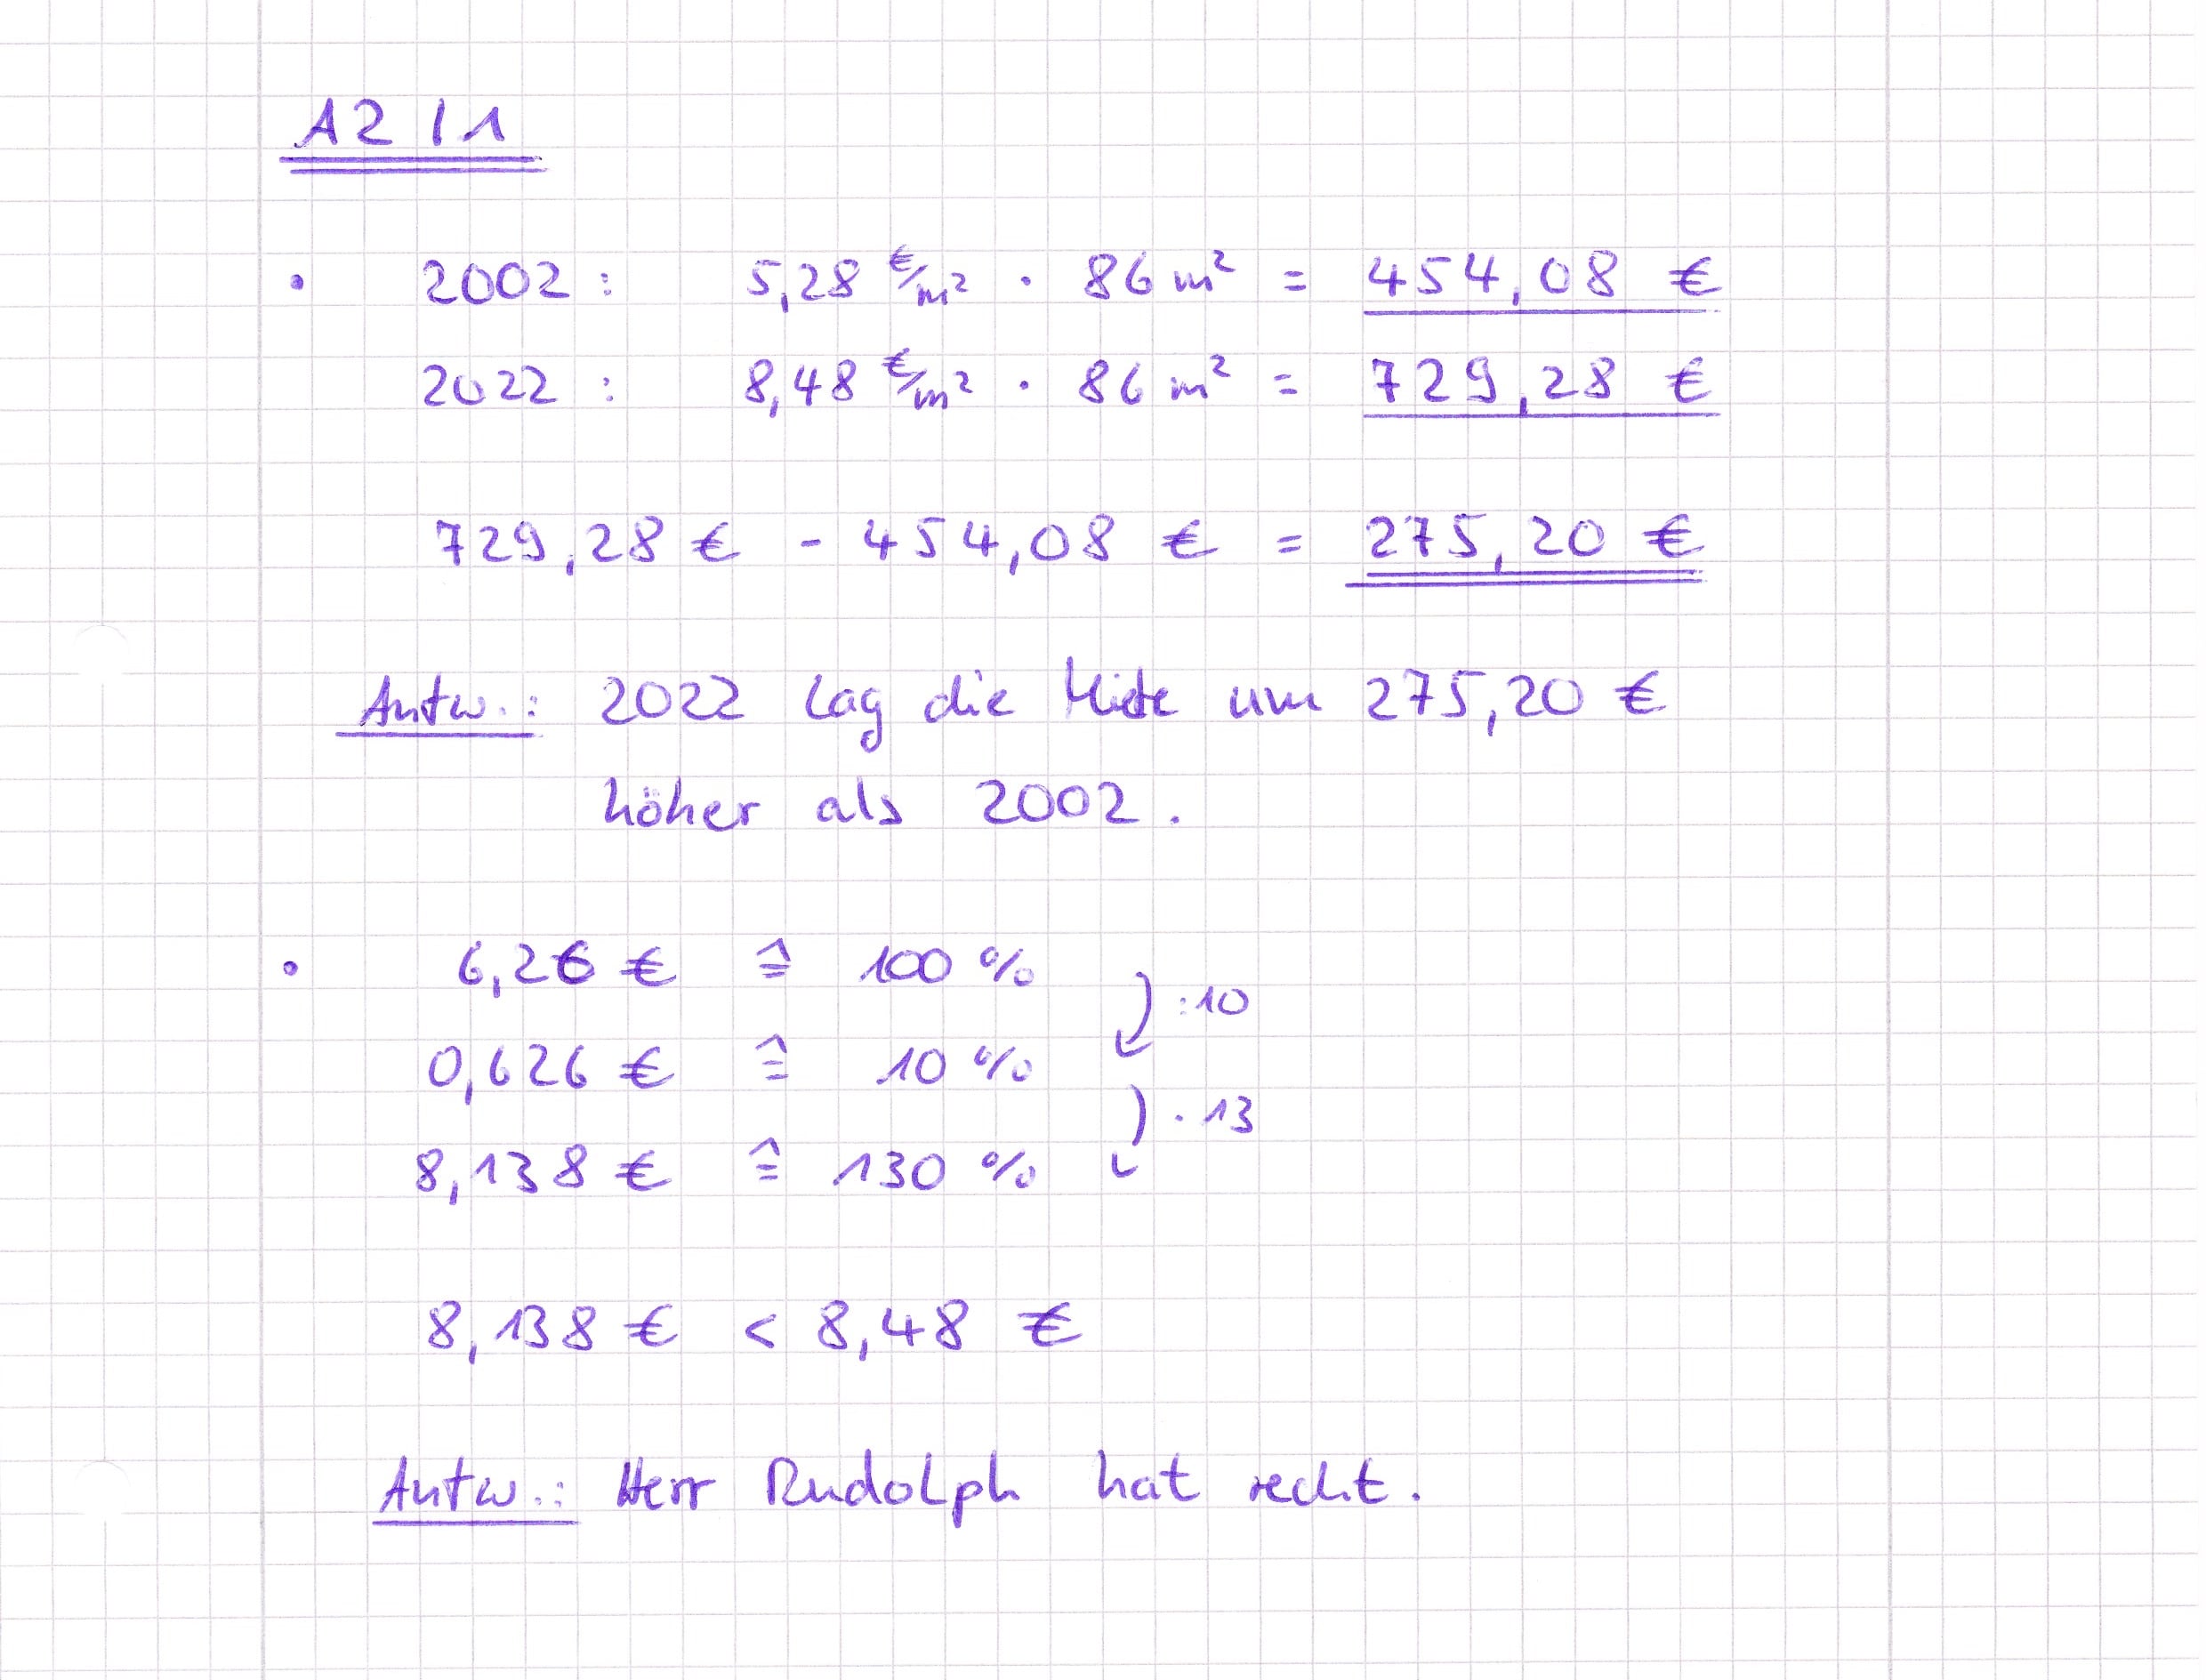 A2 I1
• 2002 : 5,28 €/m² · 86 m² = 454,08 €
2022 : 8,48 €/m² · 86 m² = 729,28 €
729,28 € - 454,08 € = 275,20 €
Antw.: 2022 lag die Miete um 275,20 €
höher als 2002.
• 6,26 € ≙ 100 %
:10
0,626 € ≙ 10 %
· 13
8,138 € ≙ 130 %
8,138 € < 8,48 €
Antw.: Herr Rudolph hat recht.